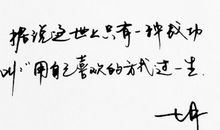 据说这世上只有一种成功
叫“用自己喜欢的方式过一生.